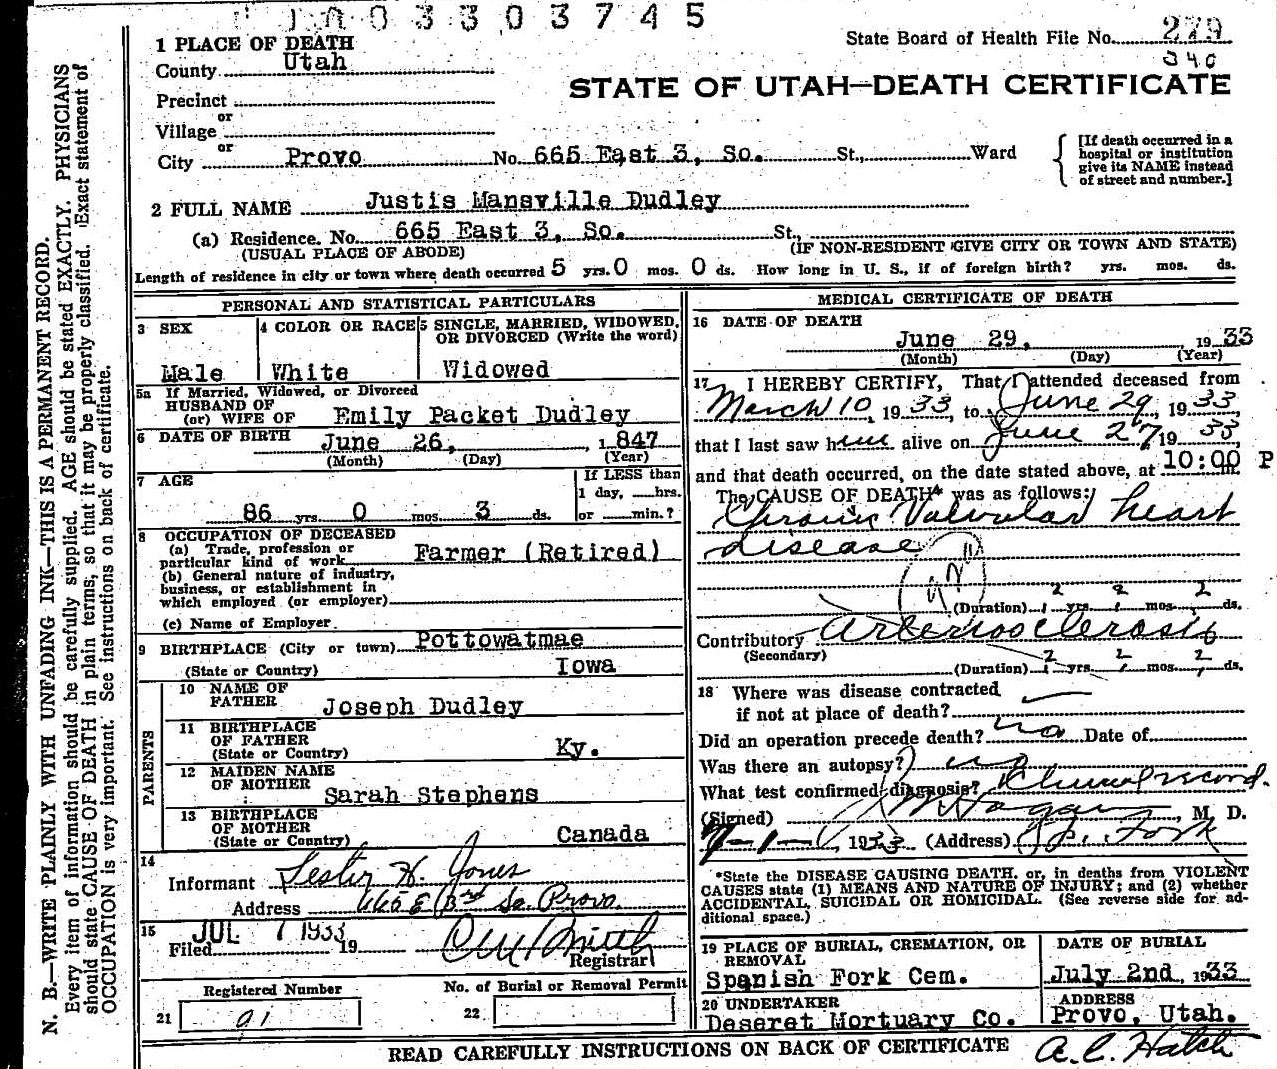 0 3 3 0 3 7 4 5
1 PLACE OF DEATH
State Board of Health File No. 279
340
County Utah
STATE OF UTAH—DEATH CERTIFICATE
Precinct
or
Village
or
City Provo No. 665 East 3, So. St., Ward
[If death occurred in a hospital or institution give its NAME instead of street and number.]
2 FULL NAME Justis Mansville Dudley
(a) Residence. No. 665 East 3, So. St.,
(USUAL PLACE OF ABODE) (IF NON-RESIDENT GIVE CITY OR TOWN AND STATE)
Length of residence in city or town where death occurred 5 yrs. 0 mos. 0 ds. How long in U. S., if of foreign birth? yrs. mos. ds.
PERSONAL AND STATISTICAL PARTICULARS
3 SEX
Male
4 COLOR OR RACE
White
5 SINGLE, MARRIED, WIDOWED, OR DIVORCED (Write the word)
Widowed
5a If Married, Widowed, or Divorced
HUSBAND OF
(or) WIFE OF Emily Packet Dudley
6 DATE OF BIRTH June 26, 1847
(Month) (Day) (Year)
7 AGE
86 yrs. 0 mos. 3 ds.
If LESS than
1 day, hrs.
or min.?
8 OCCUPATION OF DECEASED
(a) Trade, profession or
particular kind of work Farmer (Retired)
(b) General nature of industry,
business, or establishment in
which employed (or employer)
(c) Name of Employer
9 BIRTHPLACE (City or town) Pottowatmae
(State or Country) Iowa
PARENTS
10 NAME OF
FATHER Joseph Dudley
11 BIRTHPLACE
OF FATHER
(State or Country) Ky.
12 MAIDEN NAME
OF MOTHER
Sarah Stephens
13 BIRTHPLACE
OF MOTHER
(State or Country) Canada
14
Informant Lester H. Jones
Address 666 E 3rd So. Provo.
15
Filed JUL 7 1933 19
Registrar
Registered Number
21 91
No. of Burial or Removal Permit
22
MEDICAL CERTIFICATE OF DEATH
16 DATE OF DEATH
June 29, 1933
(Month) (Day) (Year)
17 I HEREBY CERTIFY, That I attended deceased from
March 10, 1933, to June 29, 1933,
that I last saw him alive on June 27 1933
and that death occurred, on the date stated above, at 10:00 P m.
The CAUSE OF DEATH* was as follows:
Chronic Valvular heart
disease
(Duration) yrs. mos. ds.
Contributory Arteriosclerosis
(Secondary)
(Duration) yrs. mos. ds.
18 Where was disease contracted
if not at place of death?
Did an operation precede death? no Date of
Was there an autopsy? no
What test confirmed diagnosis? Clinical record.
(Signed) Hagan, M. D.
7-1-, 1933 (Address) Sp. Fork
*State the DISEASE CAUSING DEATH, or, in deaths from VIOLENT
CAUSES state (1) MEANS AND NATURE OF INJURY; and (2) whether
ACCIDENTAL, SUICIDAL OR HOMICIDAL. (See reverse side for ad-
ditional space.)
19 PLACE OF BURIAL, CREMATION, OR
REMOVAL
Spanish Fork Cem.
DATE OF BURIAL
July 2nd, 1933
20 UNDERTAKER
Deseret Mortuary Co.
ADDRESS
Provo, Utah.
READ CAREFULLY INSTRUCTIONS ON BACK OF CERTIFICATE
A. C. Hatch
N. B.—WRITE PLAINLY WITH UNFADING INK—THIS IS A PERMANENT RECORD.
Every item of information should be carefully supplied. AGE should be stated EXACTLY. PHYSICIANS
should state CAUSE OF DEATH in plain terms, so that it may be properly classified. Exact statement of
OCCUPATION is very important. See instructions on back of certificate.